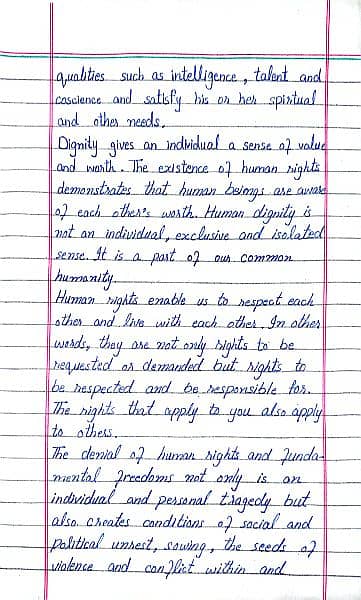 qualities such as intelligence, talent and
coscience and satisfy his or her spiritual
and other needs.
Dignity gives an individual a sense of value
and worth. The existence of human rights
demonstrates that human beings are aware
of each other's worth. Human dignity is
not an individual, exclusive and isolated
sense. It is a part of our common
humanity.
Human rights enable us to respect each
other and live with each other. In other
words, they are not only rights to be
requested or demanded but rights to
be respected and be responsible for.
The rights that apply to you also apply
to others.
The denial of human rights and funda-
mental freedoms not only is an
individual and personal tragedy but
also creates conditions of social and
political unrest, sowing, the seeds of
violence and conflict within and